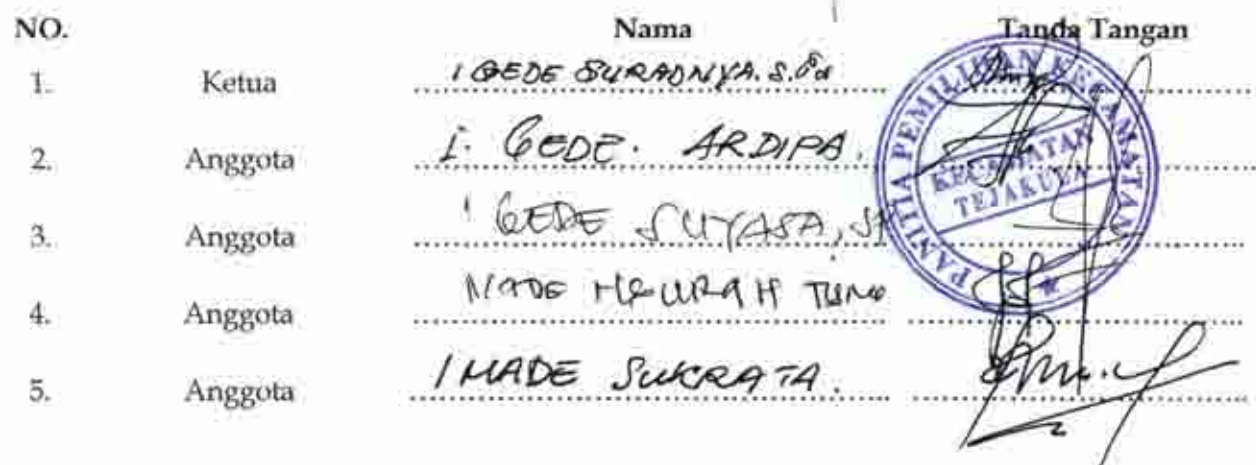 NO. Nama Tanda Tangan
1. Ketua I GEDE SURADNYA. S.Pd
2. Anggota I. GEDE. ARDIPA.
3. Anggota I GEDE SUYASA, S
4. Anggota MADE NGURAH
5. Anggota I MADE SUKRATA.
PANITIA PEMILIHAN KECAMATAN
KECAMATAN
TEJAKULA